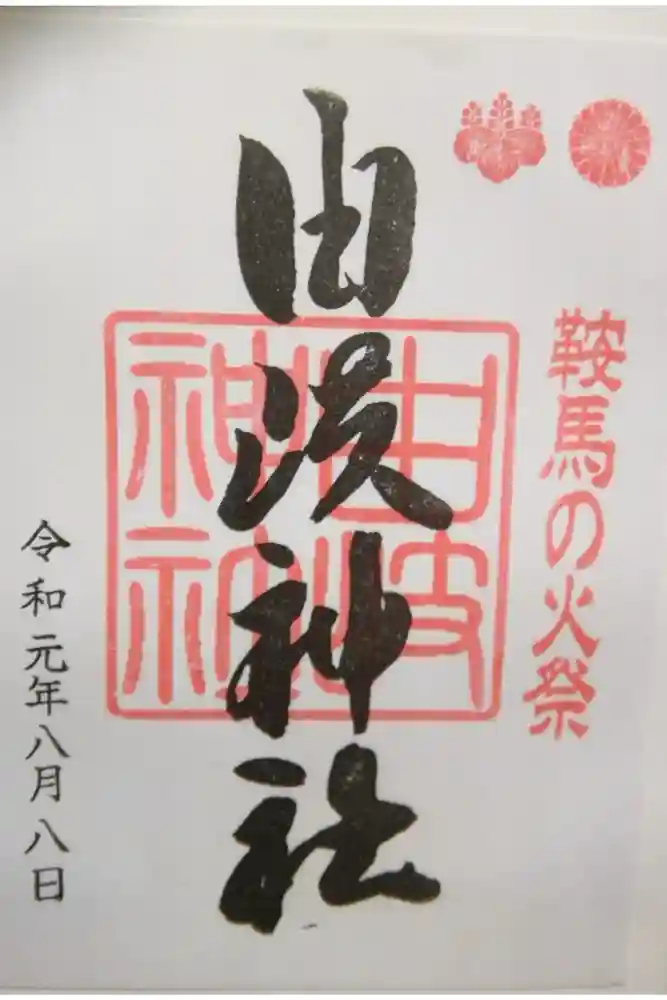 鞍馬の火祭
由岐神社
由岐
神社
令和元年八月八日